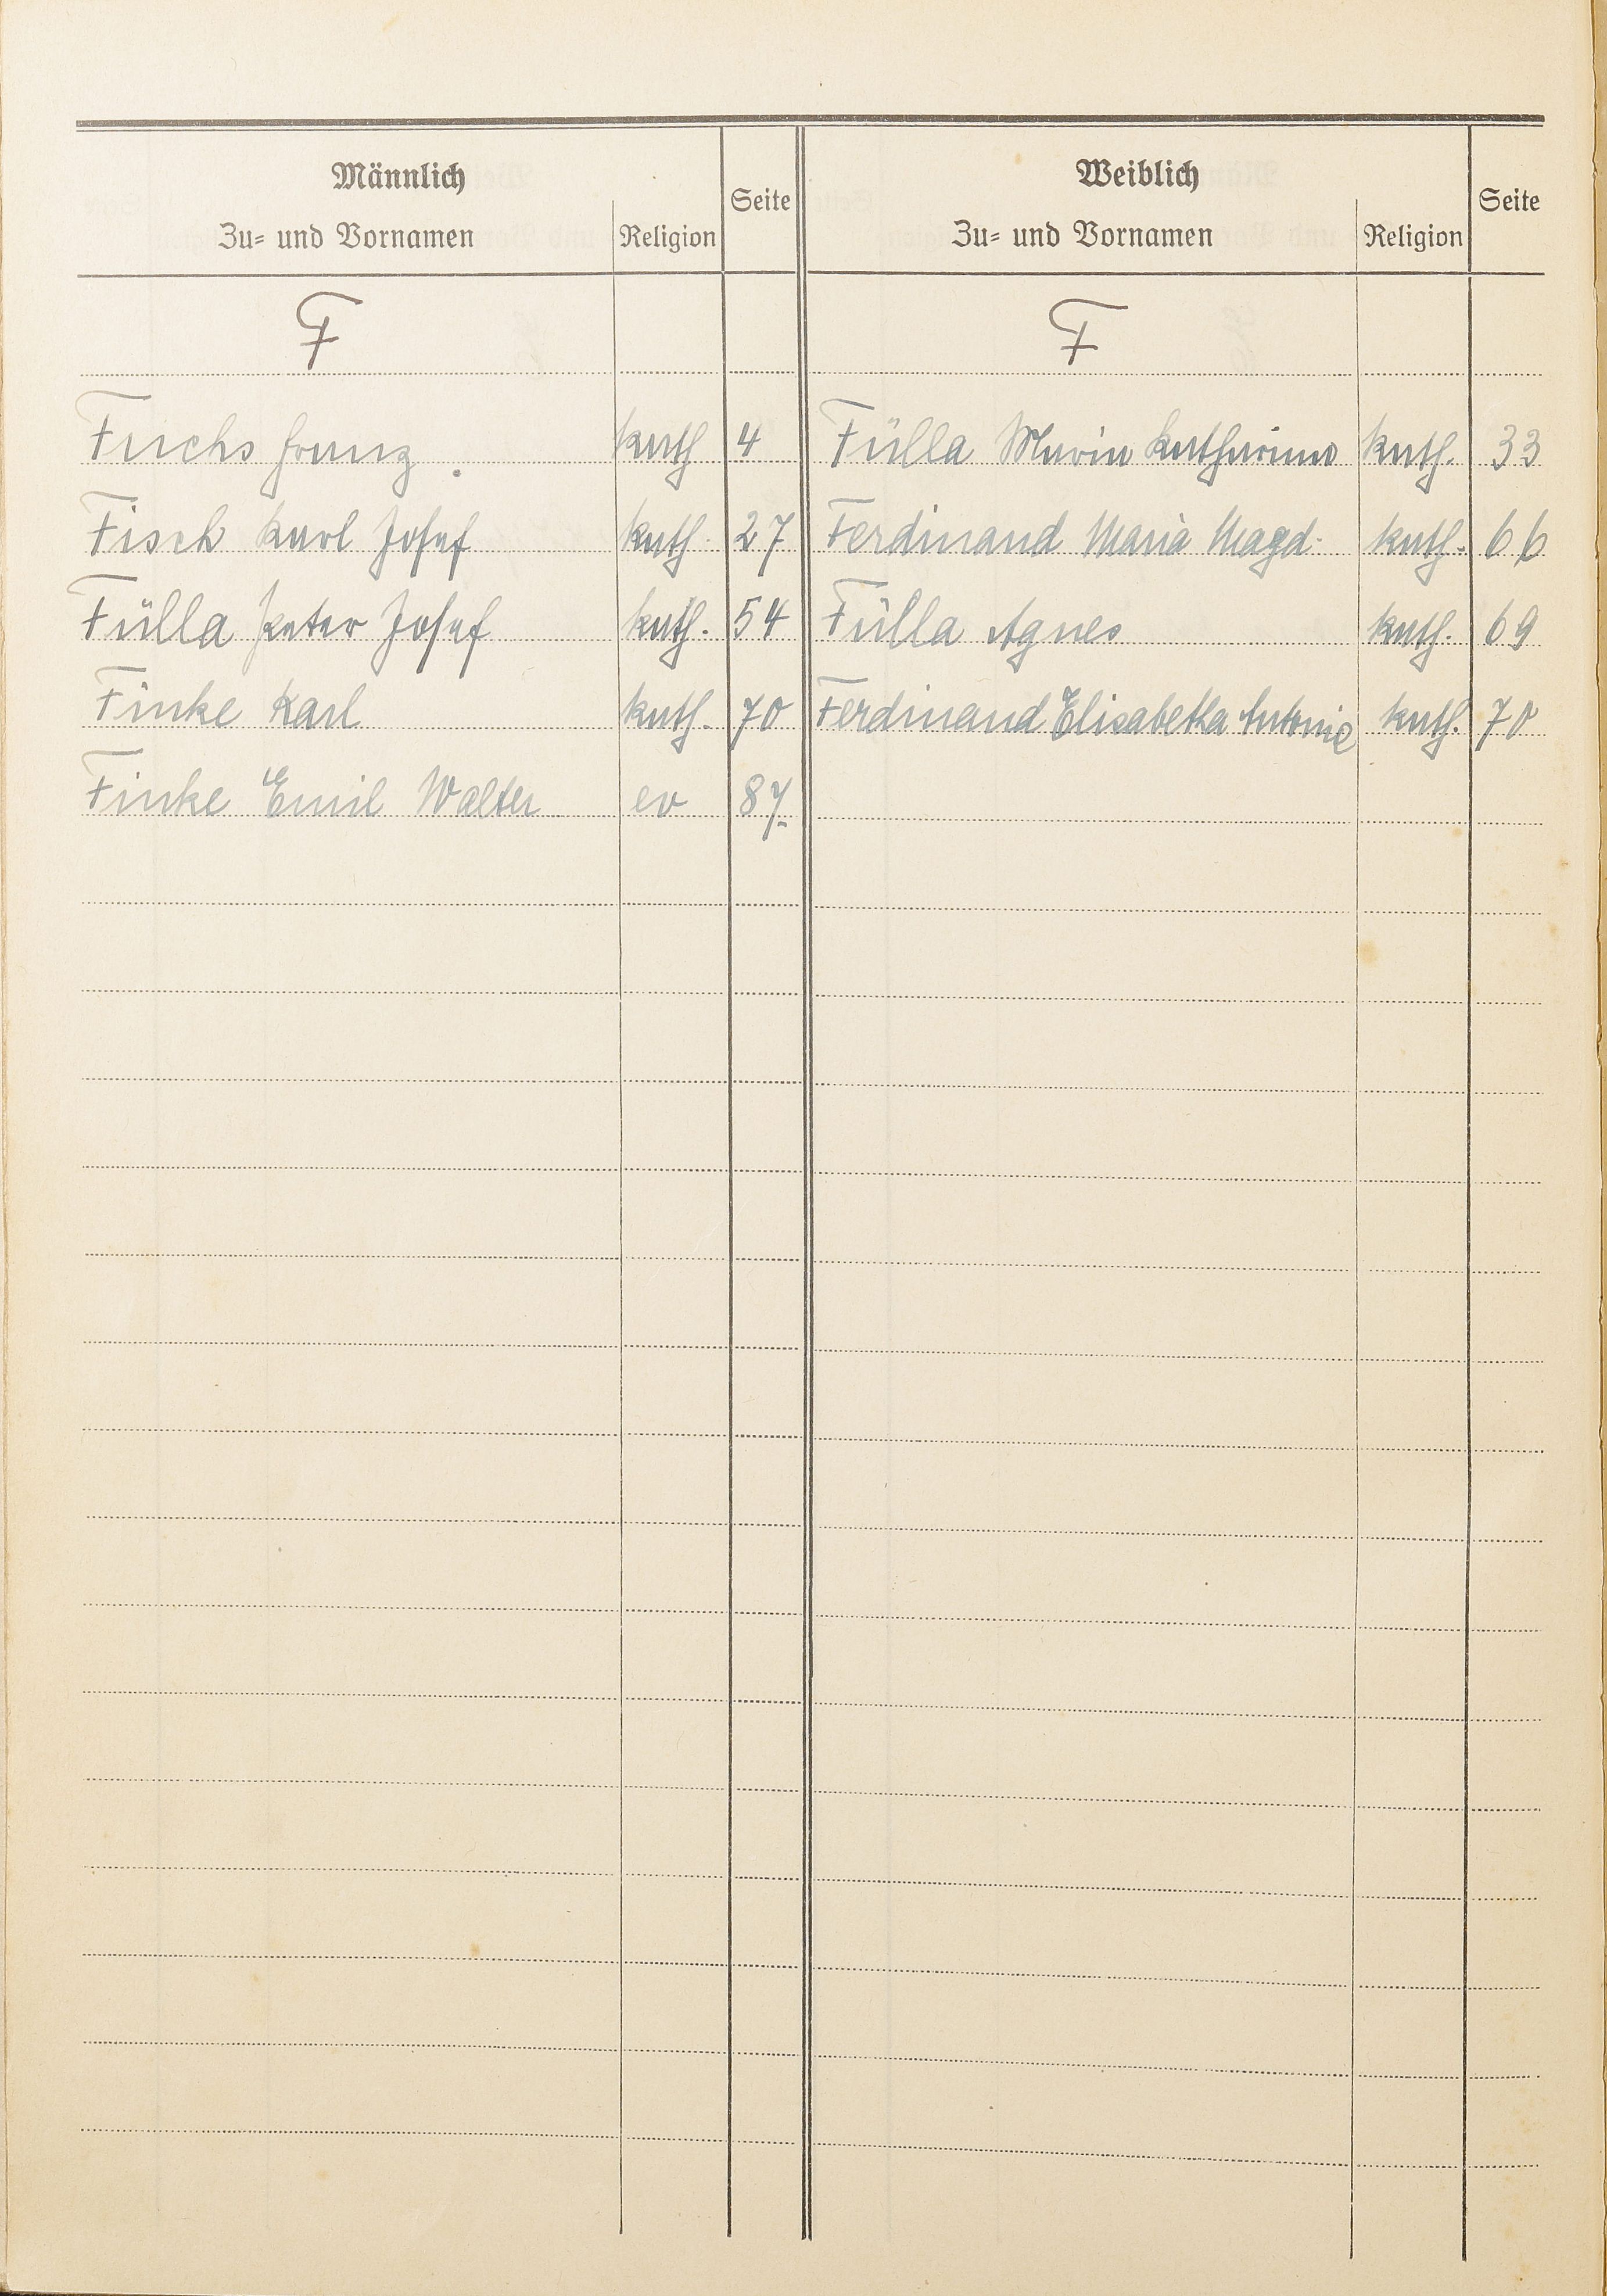 Männlich
Zu- und Vornamen Religion Seite
F
Fuchs Franz kath 4
Fisch Karl Josef kath. 27
Fülla Peter Josef kath. 54
Finke Karl kath. 70
Finke Emil Walter ev 87
Weiblich
Zu- und Vornamen Religion Seite
F
Fülla Maria Katharina kath. 33
Ferdinand Maria Magd. kath. 66
Fülla Agnes kath. 69
Ferdinand Elisabetha Antonie kath. 70